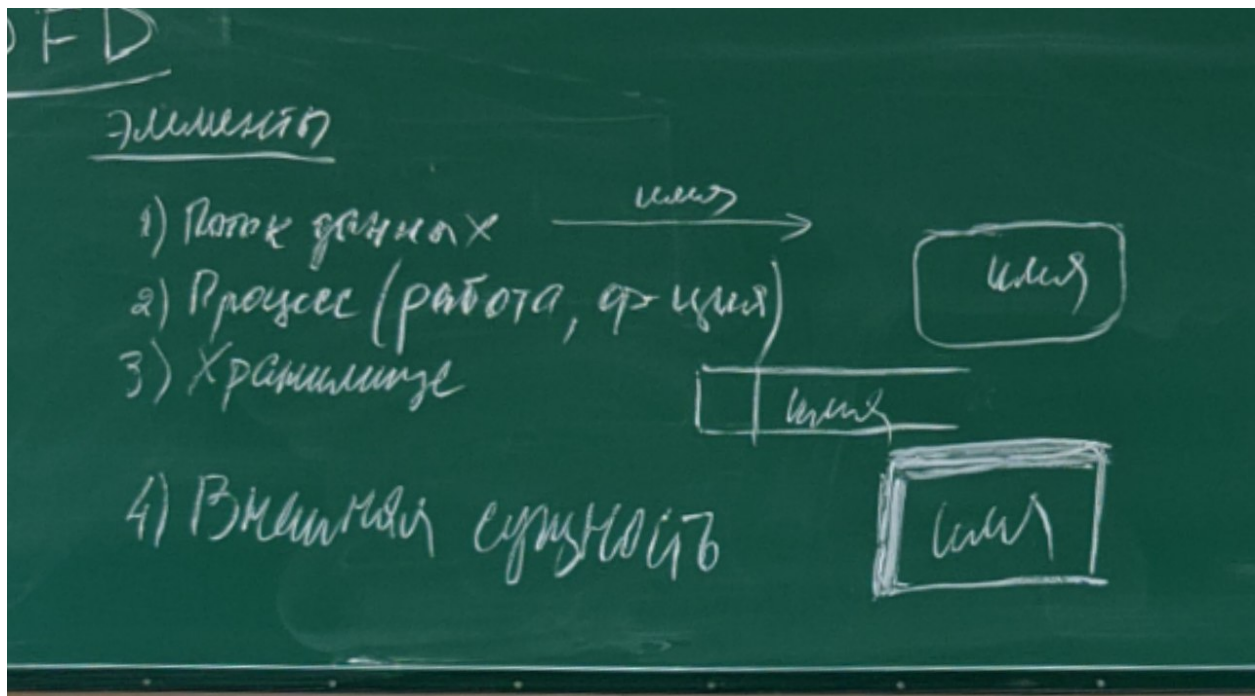 DFD
элементы
1) Поток данных
имя
2) Процесс (работа, ф-ция)
имя
3) Хранилище
имя
4) Внешняя сущность
имя